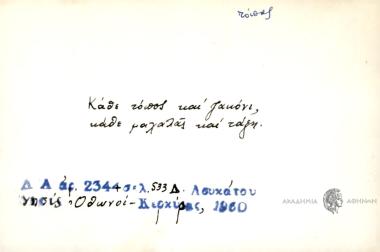 τόπος
Κάθε τόπος καὶ ζακόνι,
κάθε μαχαλᾶς καὶ τάξη.
Δ Α ἀρ. 2344 σελ. 533 Δ. Λουκάτου
νησὶς Ὀθωνοί - Κερκίρας, 1960
ΑΚΑΔΗΜΙΑ ΑΘΗΝΩΝ